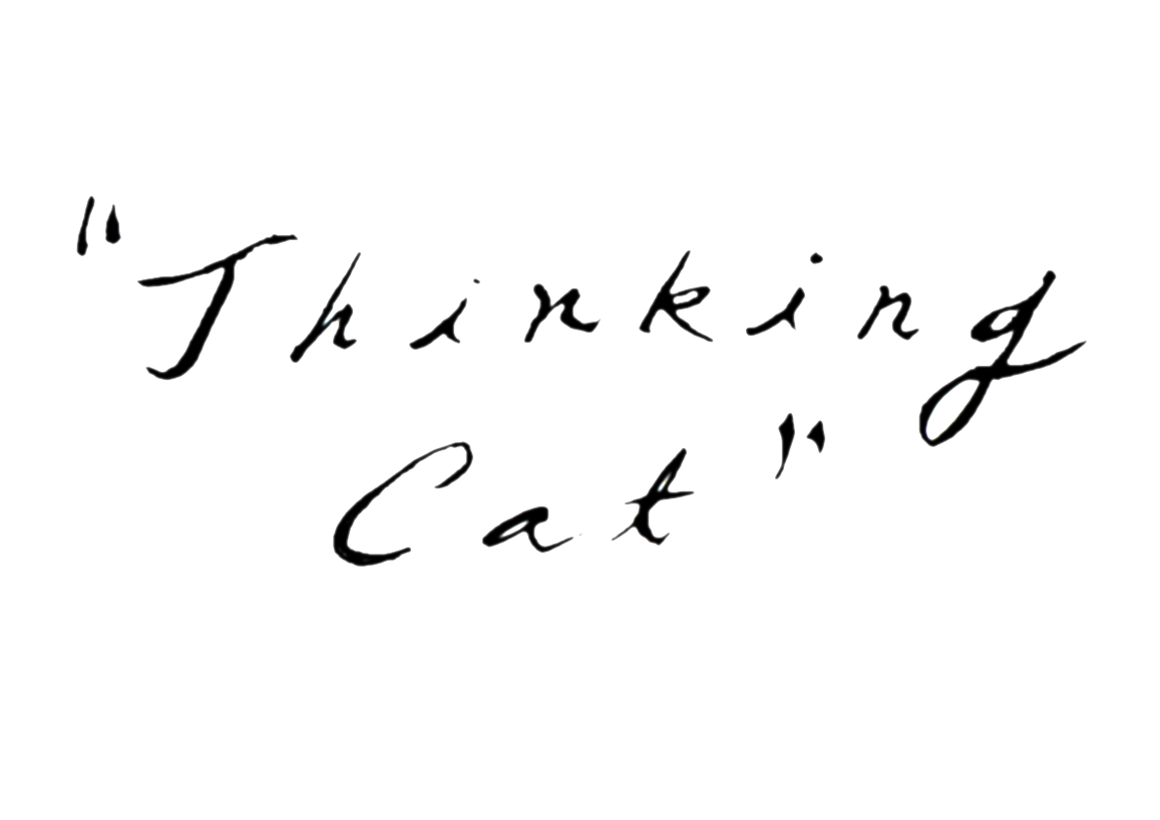 "Thinking
Cat"